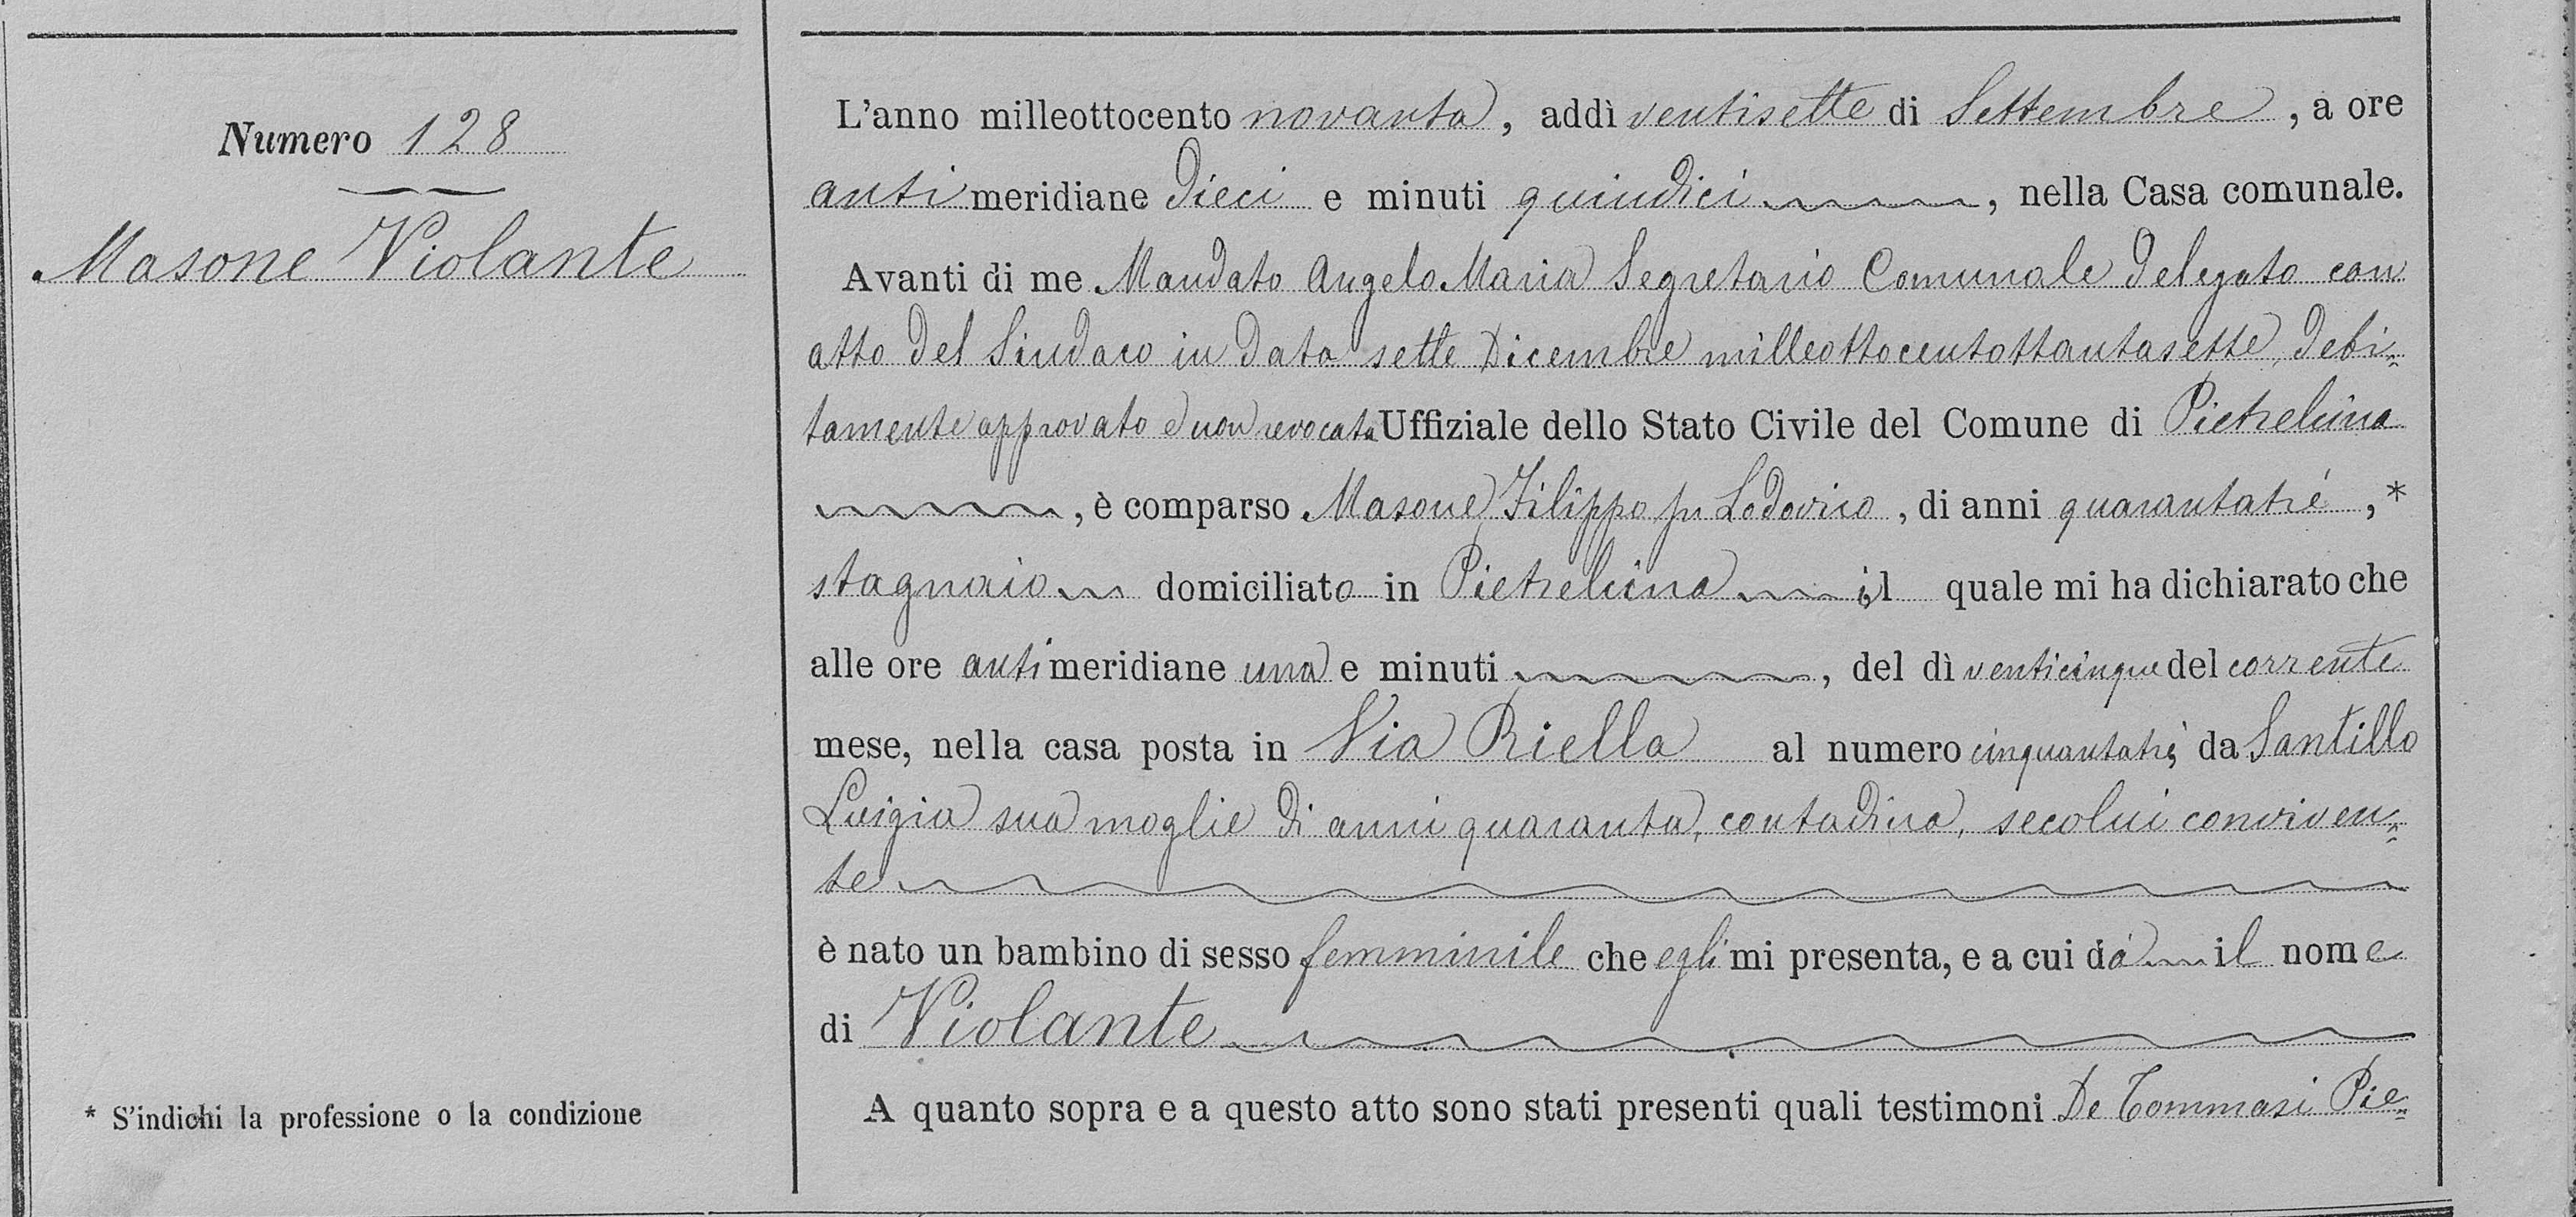 Numero 128
Masone Violante
* S'indichi la professione o la condizione
L'anno milleottocento novanta, addì ventisette di Settembre, a ore
antimeridiane dieci e minuti quindici, nella Casa comunale.
Avanti di me Mandato Angelo Maria Segretario Comunale delegato con
atto del Sindaco in data sette Dicembre milleottocentottantasette, debi-
tamente approvato e non revocato Uffiziale dello Stato Civile del Comune di Pietrelcina
, è comparso Masone Filippo fu Lodovico, di anni quarantatré,*
stagnaio domiciliato in Pietrelcina il quale mi ha dichiarato che
alle ore antimeridiane una e minuti , del dì venticinque del corrente
mese, nella casa posta in Via Riella al numero cinquantatré, da Santillo
Luigia sua moglie di anni quaranta, contadina, secolui conviven-
te
è nato un bambino di sesso femminile che egli mi presenta, e a cui dà il nome
di Violante
A quanto sopra e a questo atto sono stati presenti quali testimoni De Tommasi Pie-